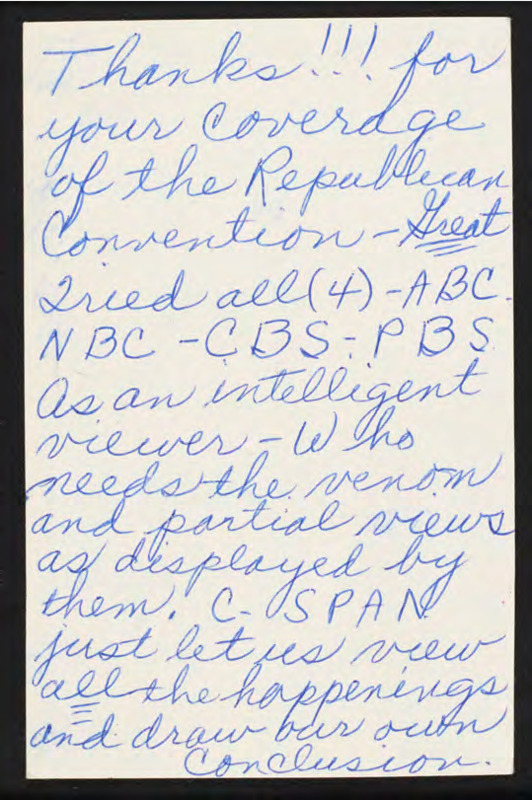 Thanks!!! for
your Coverage
of the Republican
Convention - Great
Tried all (4) - ABC.
NBC - CBS - PBS
As an intelligent
viewer - Who
needs the venom
and partial views
as displayed by
them. C-SPAN
just let us view
all the happenings
and draw our own
Conclusion.